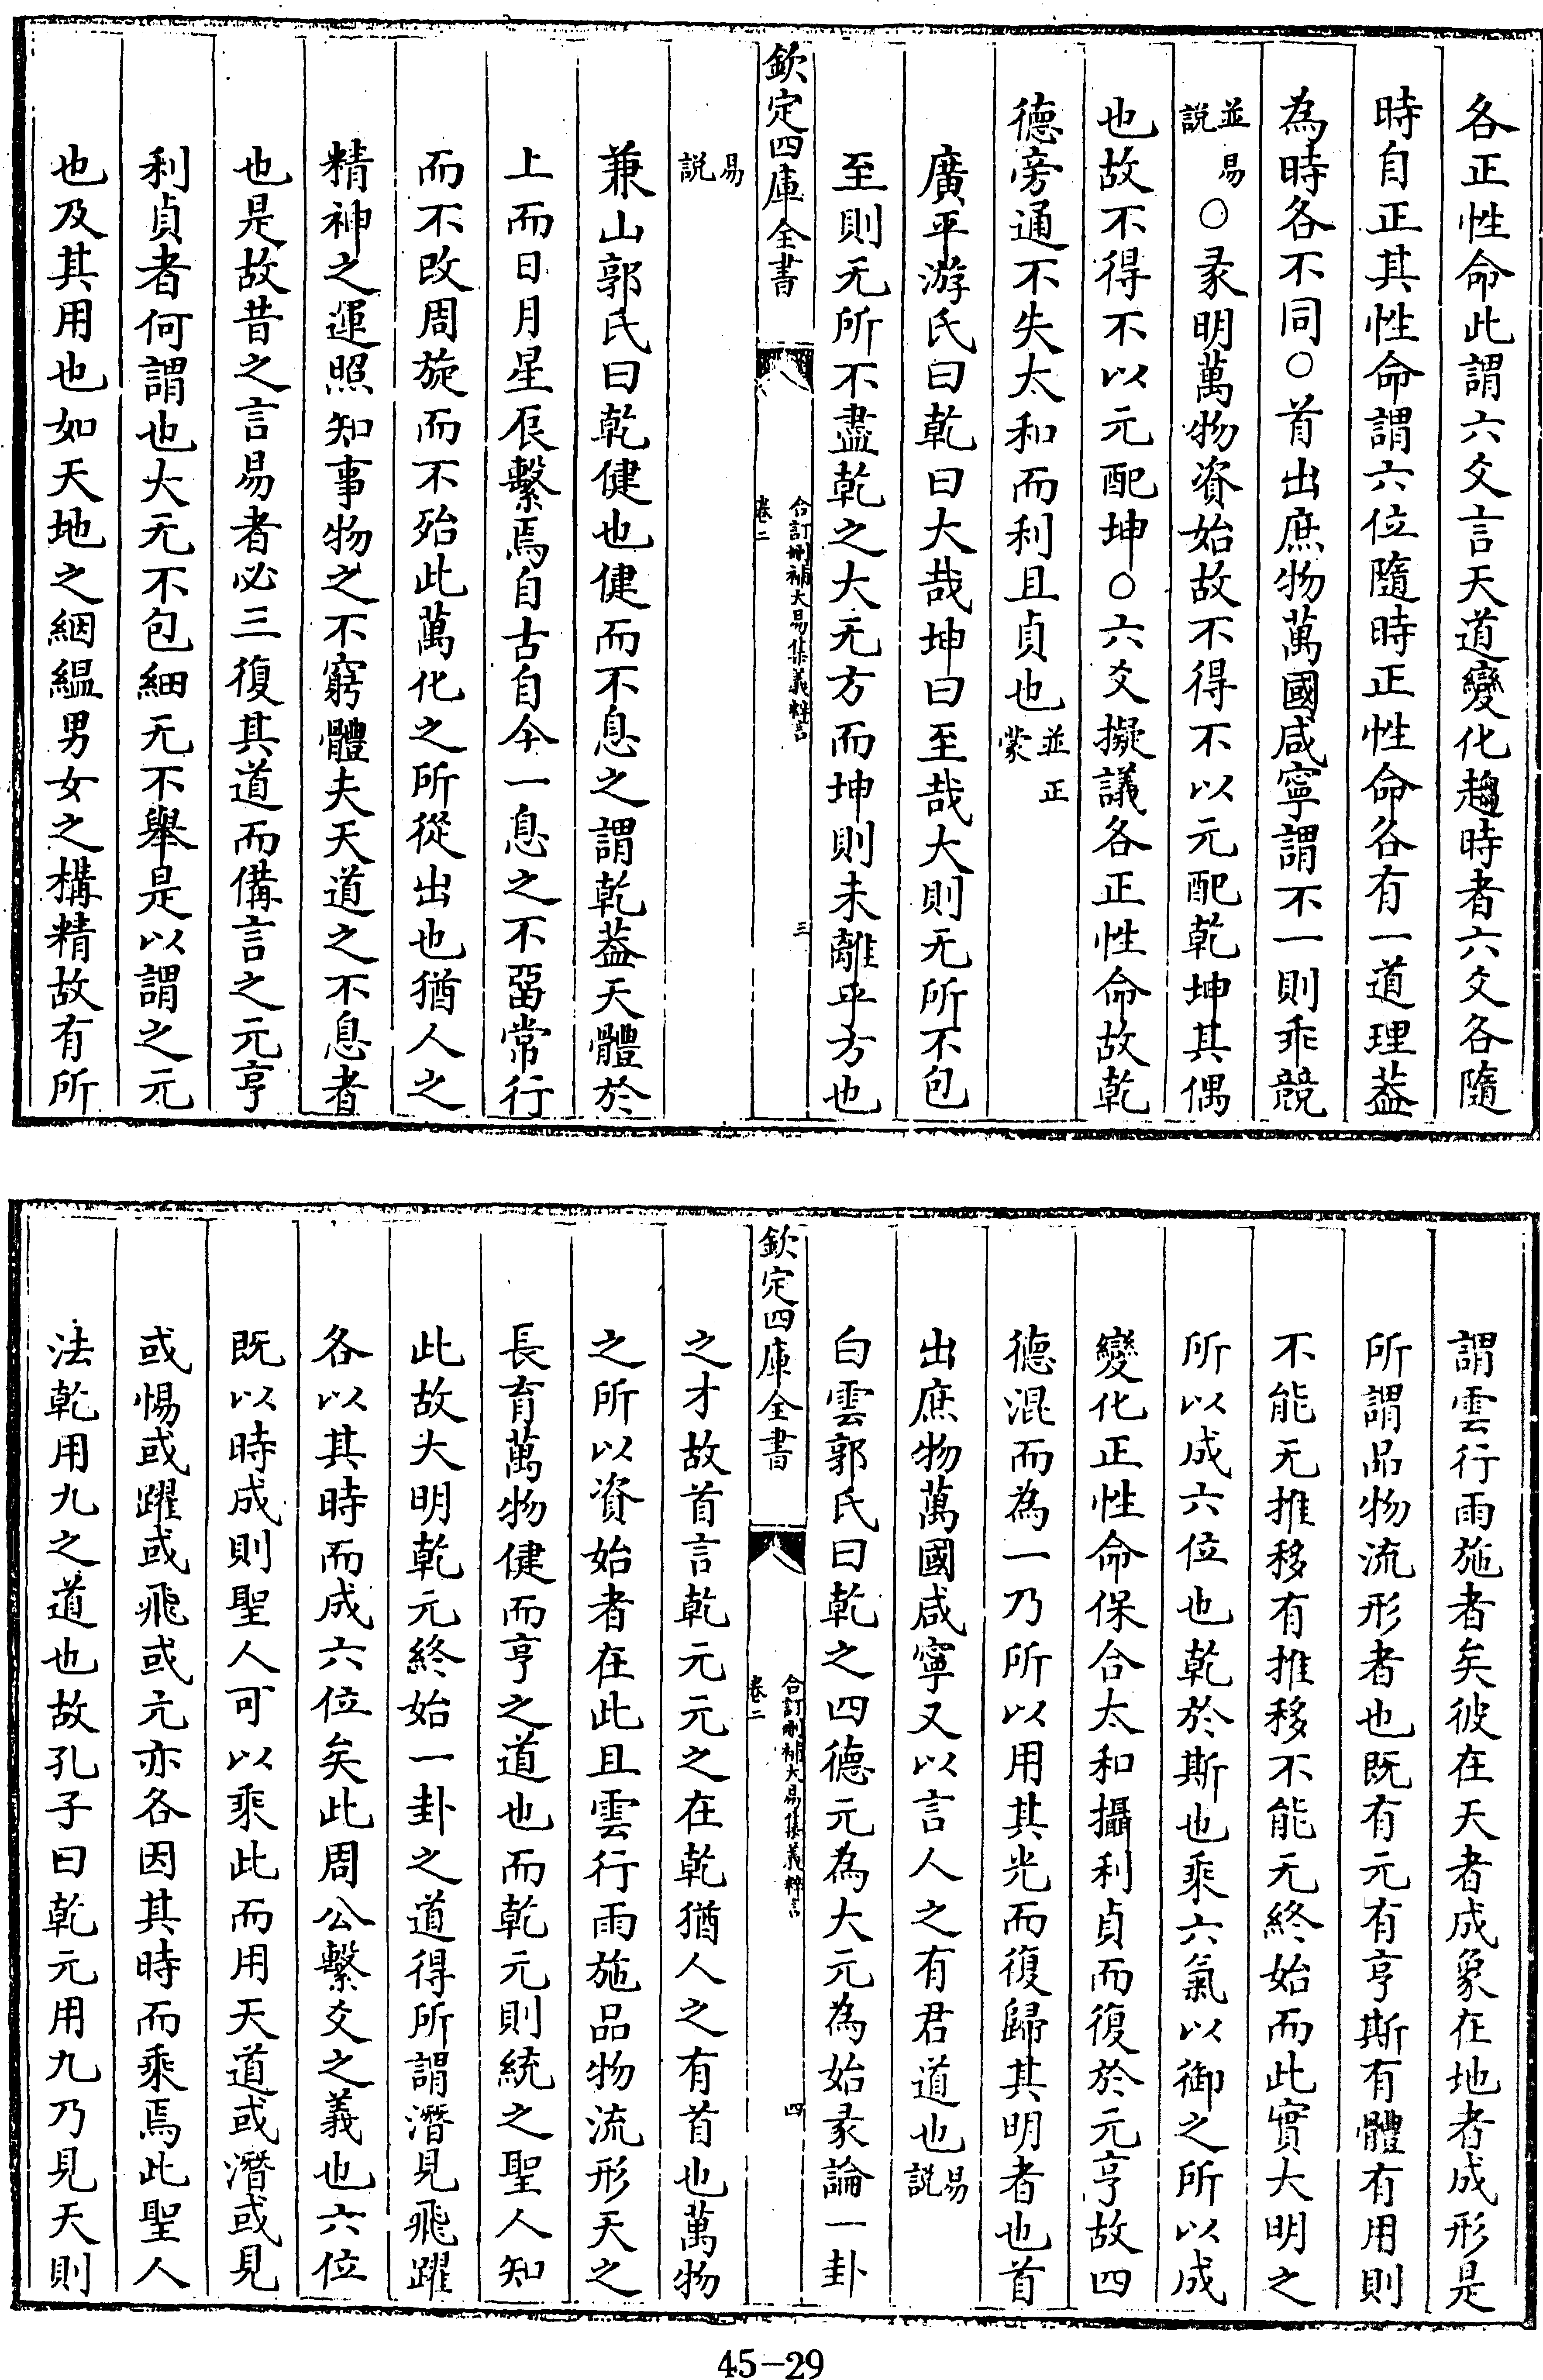 各正性命此謂六爻言天道變化趨時者六爻各隨
時自正其性命謂六位隨時正性命各有一道理葢
為時各不同○首出庶物萬國咸寧謂不一則乖競
並易說○彖明萬物資始故不得不以元配乾坤其偶
也故不得不以元配坤○六爻擬議各正性命故乾
德旁通不失太和而利且貞也並正蒙
廣平游氏曰乾曰大哉坤曰至哉大則无所不包
至則无所不盡乾之大无方而坤則未離乎方也
欽定四庫全書 合訂刪補大易集義粹言 卷二 三
易說
兼山郭氏曰乾健也健而不息之謂乾葢天體於
上而日月星辰繫焉自古自今一息之不畱常行
而不改周旋而不殆此萬化之所從出也猶人之
精神之運照知事物之不窮體夫天道之不息者
也是故昔之言易者必三復其道而備言之元亨
利貞者何謂也大无不包細无不舉是以謂之元
也及其用也如天地之絪縕男女之構精故有所
謂雲行雨施者矣彼在天者成象在地者成形是
所謂品物流形者也既有元有亨斯有體有用則
不能无推移有推移不能无終始而此實大明之
所以成六位也乾於斯也乘六氣以御之所以成
變化正性命保合太和攝利貞而復於元亨故四
德混而為一乃所以用其光而復歸其明者也首
出庶物萬國咸寧又以言人之有君道也易說
白雲郭氏曰乾之四德元為大元為始彖論一卦
欽定四庫全書 合訂刪補大易集義粹言 卷二 四
之才故首言乾元元之在乾猶人之有首也萬物
之所以資始者在此且雲行雨施品物流形天之
長育萬物健而亨之道也而乾元則統之聖人知
此故大明乾元終始一卦之道得所謂潛見飛躍
各以其時而成六位矣此周公繫爻之義也六位
既以時成則聖人可以乘此而用天道或潛或見
或惕或躍或飛或亢亦各因其時而乘焉此聖人
法乾用九之道也故孔子曰乾元用九乃見天則
45-29